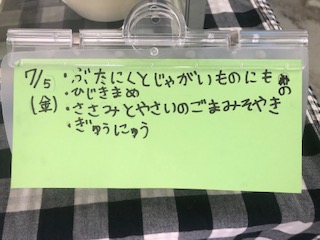 7/5
(金)
・ぶたにくとじゃがいものにもの
・ひじきまめ
・ささみとやさいのごまみそやき
・ぎゅうにゅう